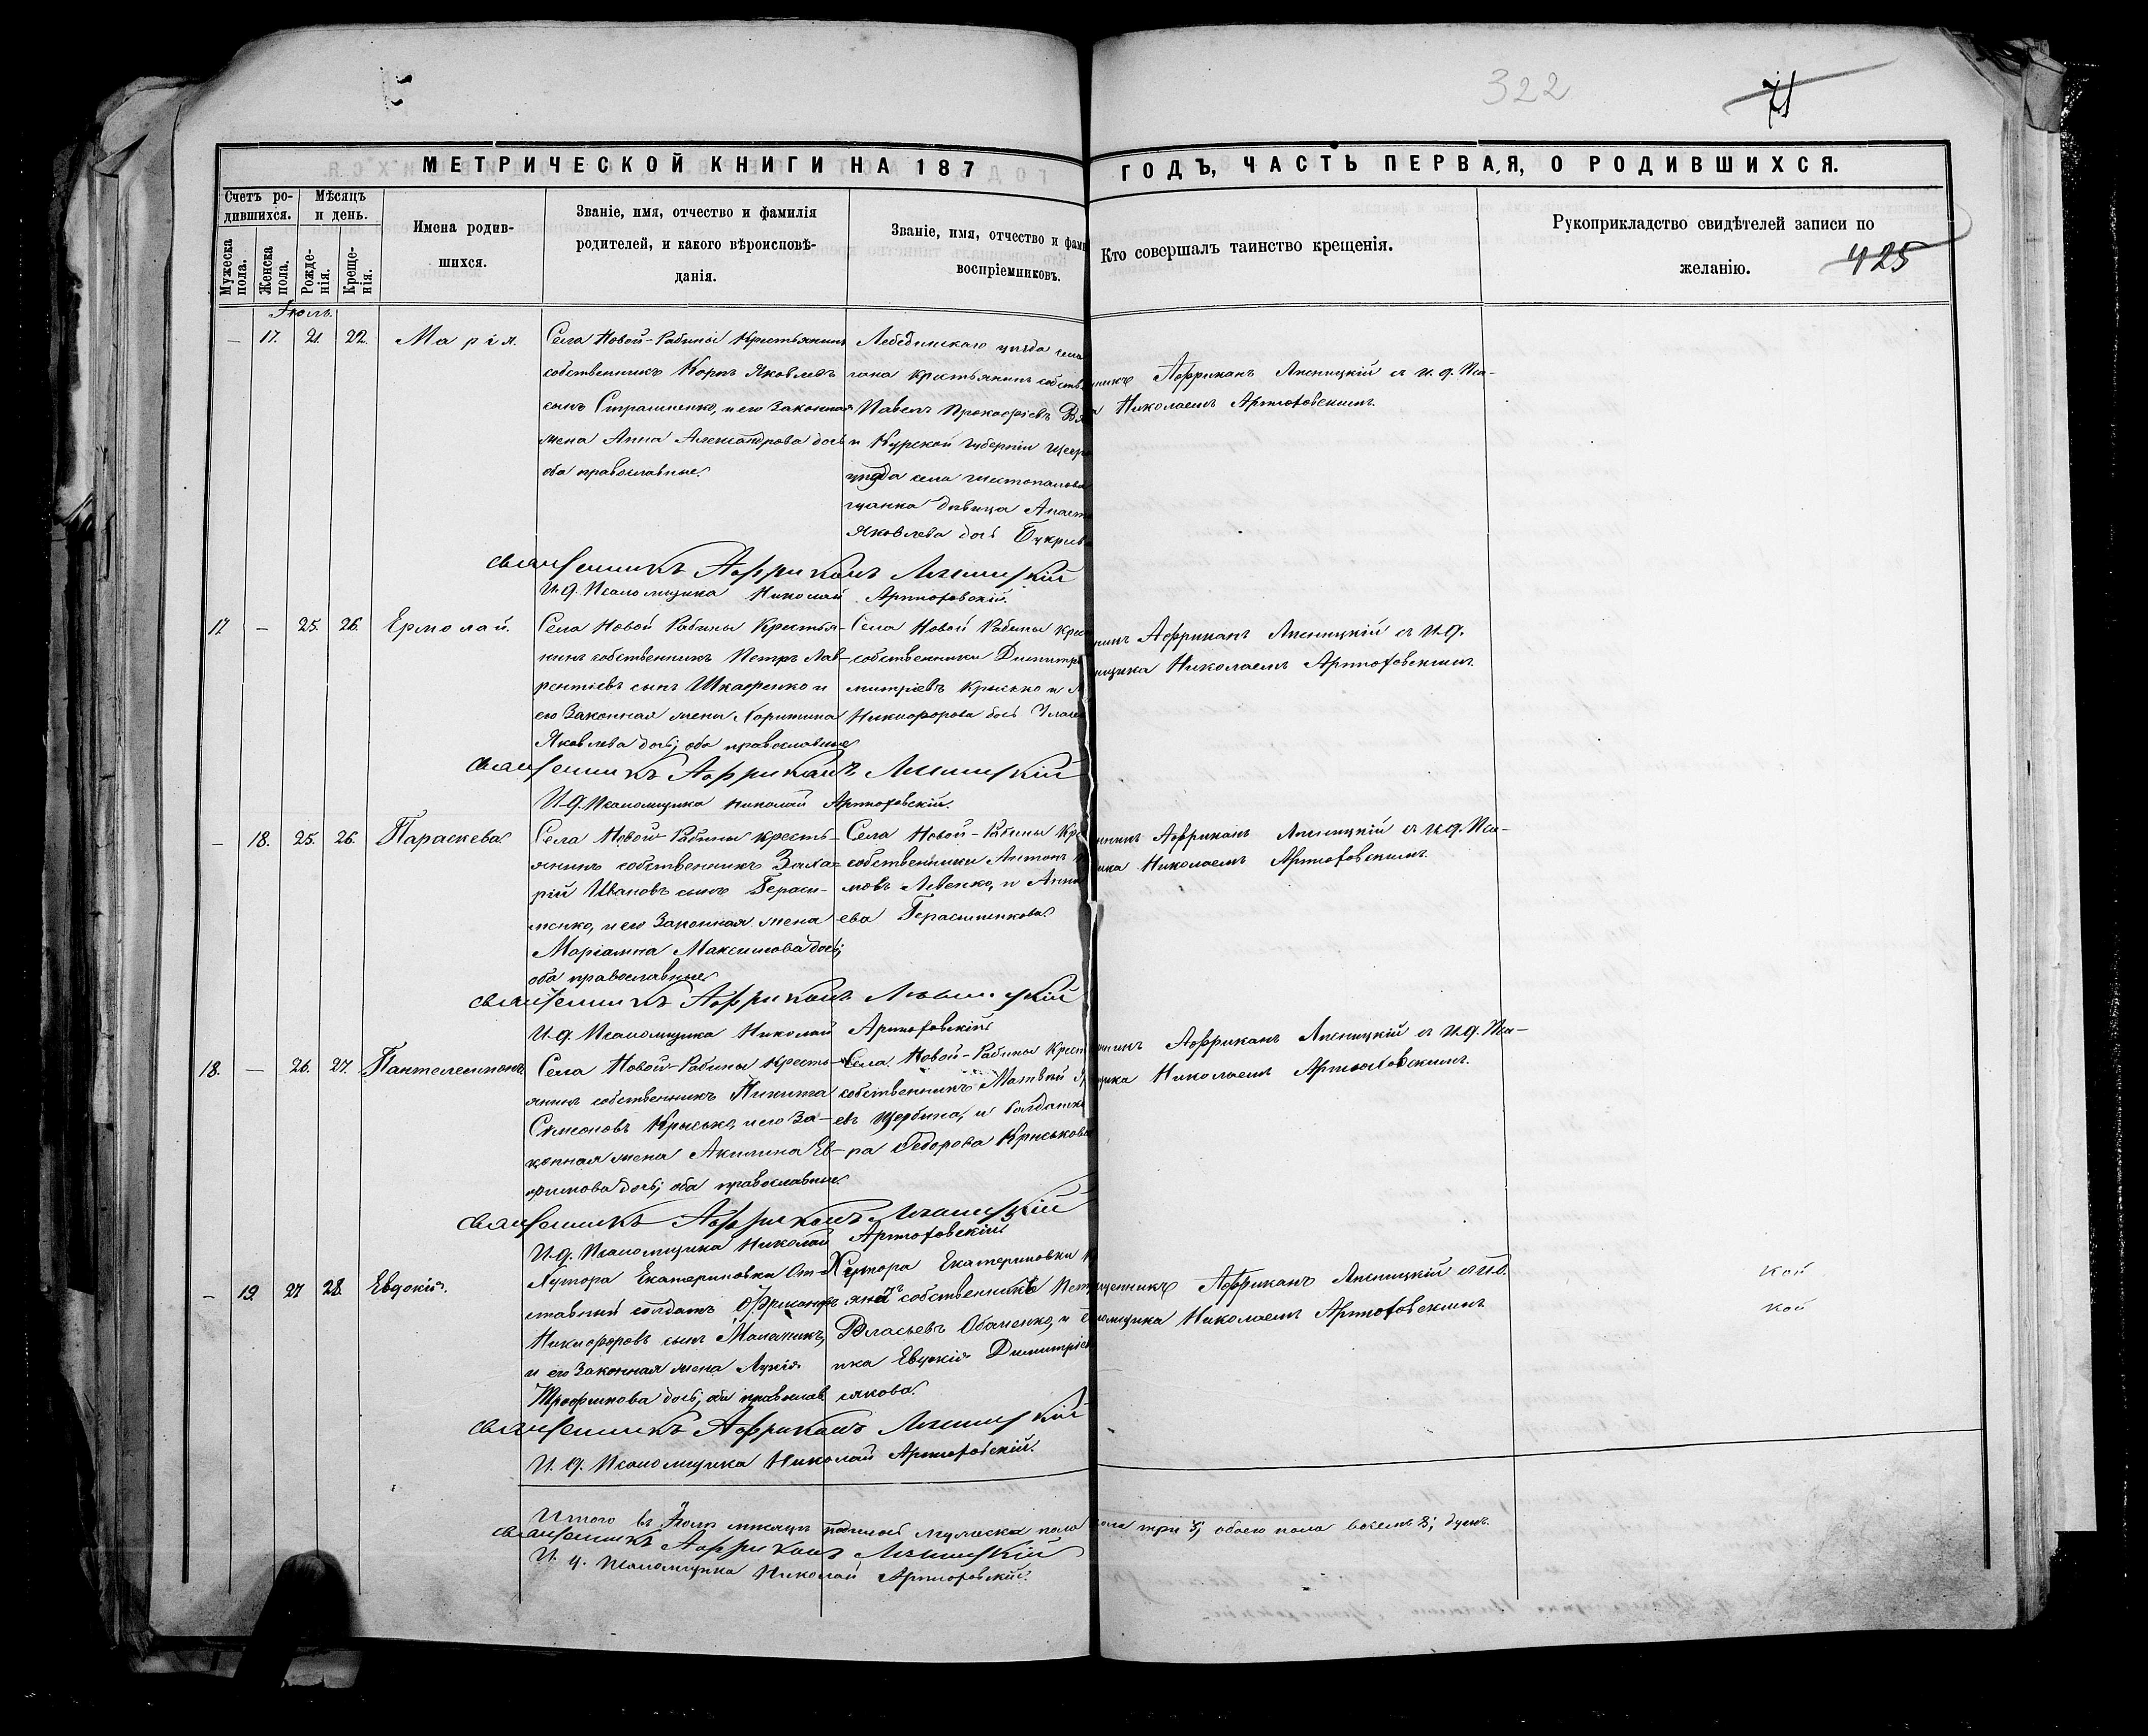 322
71
МЕТРИЧЕСКОЙ КНИГИ НА 187 ГОДЪ, ЧАСТЬ ПЕРВАЯ, О РОДИВШИХСЯ.
Счетъ ро-
дившихся.
Мужеска
пола.
Женска
пола.
Мѣсяцъ
и день.
Рожде-
нія.
Креще-
нія.
Имена родив-
шихся.
Званіе, имя, отчество и фамилія
родителей, и какого вѣроисповѣ-
данія.
Званіе, имя, отчество и фами
воспріемниковъ.
Кто совершалъ таинство крещенія.
Рукоприкладство свидѣтелей записи по
желанію.
425
Іюль.
— 17. 21. 22. Марія.
Села Новой-Рабины крестьянинъ
собственникъ Корнъ Яковлевъ
сынъ Страшненко, и его законная
жена Анна Александрова дочь
оба православные.
Лебединскаго уѣзда села
крестьянинъ собств
Павелъ Прокофіевъ
и Курской губерніи Щигр
уѣзда села
дѣвица Анаст
Яковлева дочь
никъ Африканъ Лисницкій съ и. д. Пса-
Николаемъ Артюховскимъ.
Священникъ Африканъ Лисницкій
И. д. Псаломщика Николай Артюховскій.
17 — 25. 26. Ермолай.
Села Новой Рабины крестья-
нинъ собственникъ Петръ Лав-
рентіевъ сынъ Шкафенко и
его законная жена Харитина
Яковлева дочь; оба православные
Села Новой Рабины крес
собственники Димитрі
митріевъ Крысько и
Никифорова дочь
никъ Африканъ Лисницкій съ И. д.
мщика Николаемъ Артюховскимъ.
Священникъ Африканъ Лисницкій
И. д. Псаломщика Николай Артюховскій.
— 18. 25. 26. Параскева.
Села Новой-Рабины кресть-
янинъ собственникъ Заха-
рій Ивановъ сынъ Гераси-
менко, и его законная жена
Маріанна Максимова дочь;
оба православные
Села Новой-Рабины Кре
собственники Антонъ
мовъ Левенко, и Анна
ева Герасименкова.
никъ Африканъ Лисницкій съ И. д. Пса-
ика Николаемъ Артюховскимъ.
Священникъ Африканъ Лисницкій
И. д. Псаломщика Николай Артюховскій
18. — 26. 27. Пантелеимонъ
Села Новой-Рабины кресть-
янинъ собственникъ Никита
Симеоновъ Крысько, и его за-
конная жена Акилина Ев-
фимова дочь; оба православные
Села Новой-Рабины Крест
собственникъ Матвей
евъ Щербина, и солдатка
ра Федорова Крыськова
никъ Африканъ Лисницкій съ И. д. Пса-
щика Николаемъ Артюховскимъ.
Священникъ Африканъ Лисницкій
И. д. Псаломщика Николай Артюховскій.
— 19. 27 28. Евдокія.
Хутора Екатериновки От-
ставный солдатъ
Никифоровъ сынъ
и его законная жена Лукія
Трофимова дочь; оба православ
Хутора Екатериновки
собственникъ Петр
Власьевъ и
Евдокія Димитріев
щенникъ Африканъ Лисницкій съ И. д.
ломщика Николаемъ Артюховскимъ
кой
кой
Священникъ Африканъ Лисницкій
И. д. Псаломщика Николай Артюховскій.
Итого въ Іюлѣ мѣсяцѣ родилось мужеска пола три 3; обоего пола восемь 8; душъ.
Священникъ Африканъ Лисницкій
И. д. Псаломщика Николай Артюховскій.